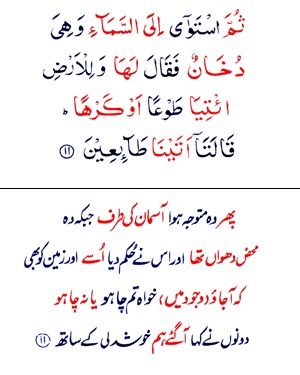 ثُمَّ اسْتَوٰٓى اِلَى السَّمَآءِ وَهِىَ
دُخَانٌ فَقَالَ لَهَا وَلِلْاَرْضِ
ائْتِيَا طَوْعًا اَوْ كَرْهًا ؕ
قَالَتَاۤ اَتَيْنَا طَآئِعِيْنَ ﴿۱۱﴾
پھر وہ متوجہ ہوا آسمان کی طرف جبکہ وہ
محض دھواں تھا اور اس نے حُکم دیا اُسے اور زمین کو بھی
کہ آجاؤ (وجود میں) خواہ تم چاہو یا نہ چاہو
دونوں نے کہا آگئے ہم خوشدلی کے ساتھ ﴿۱۱﴾